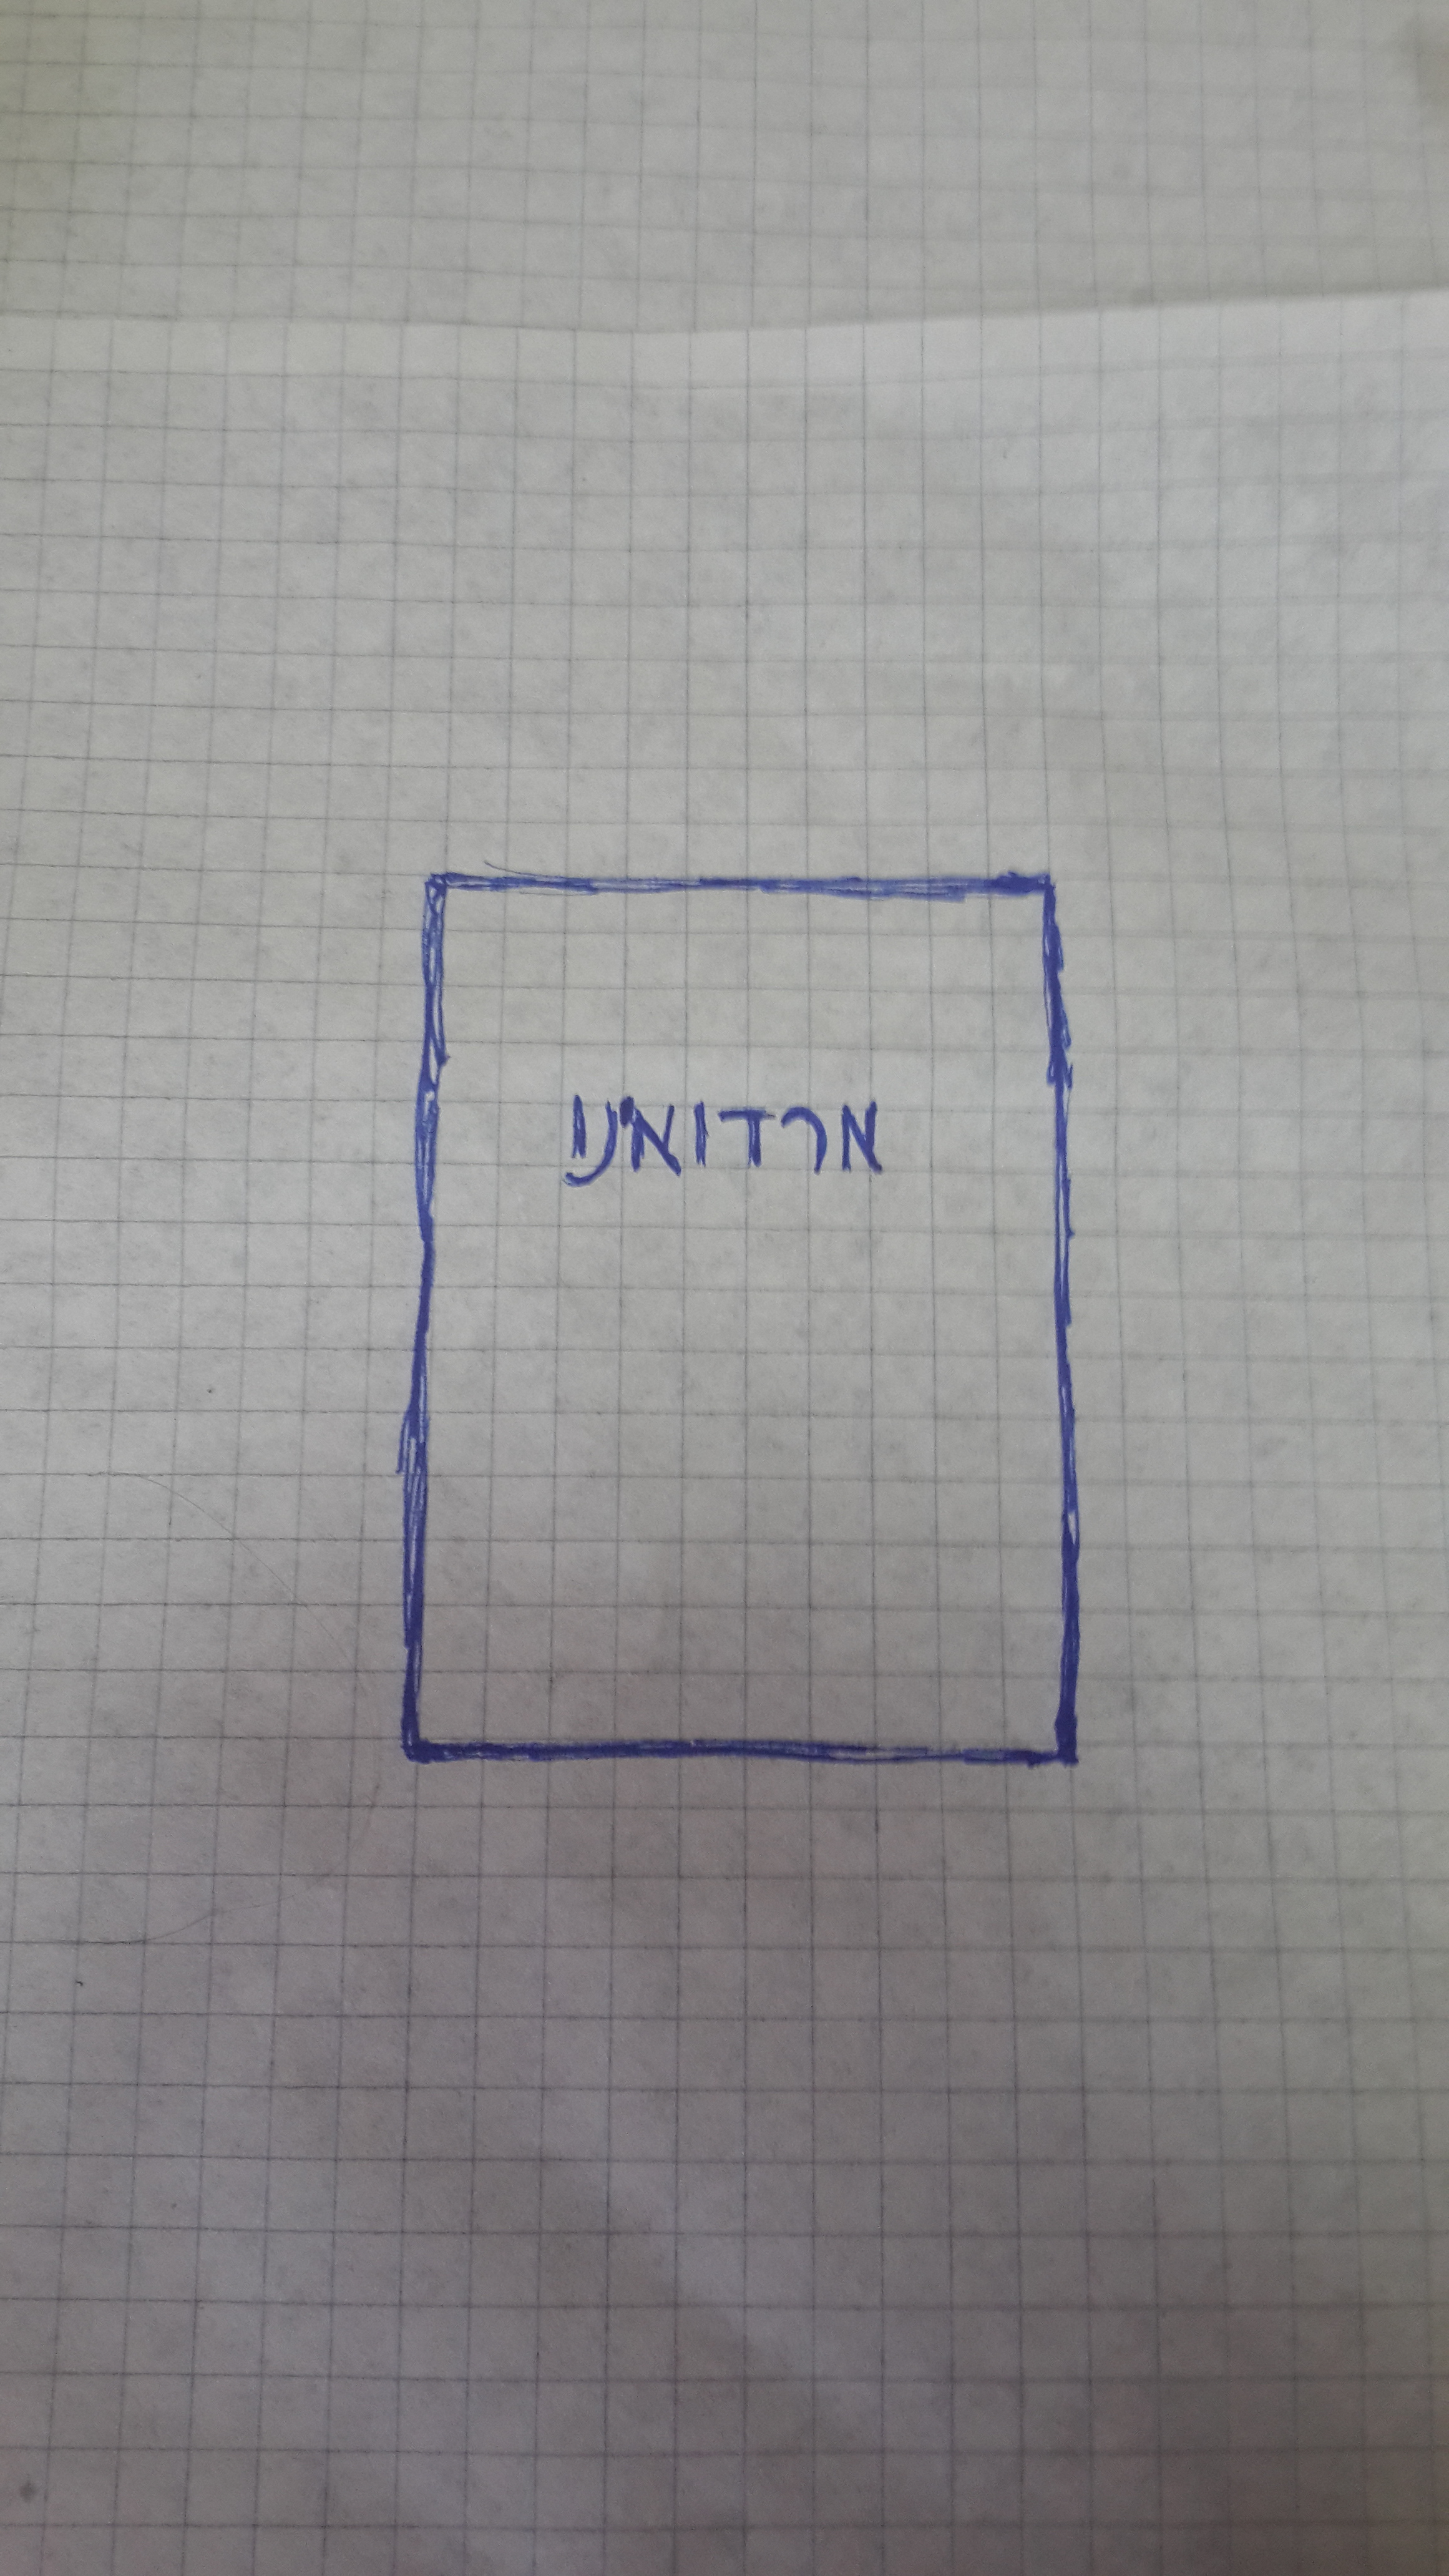 ארדואינו